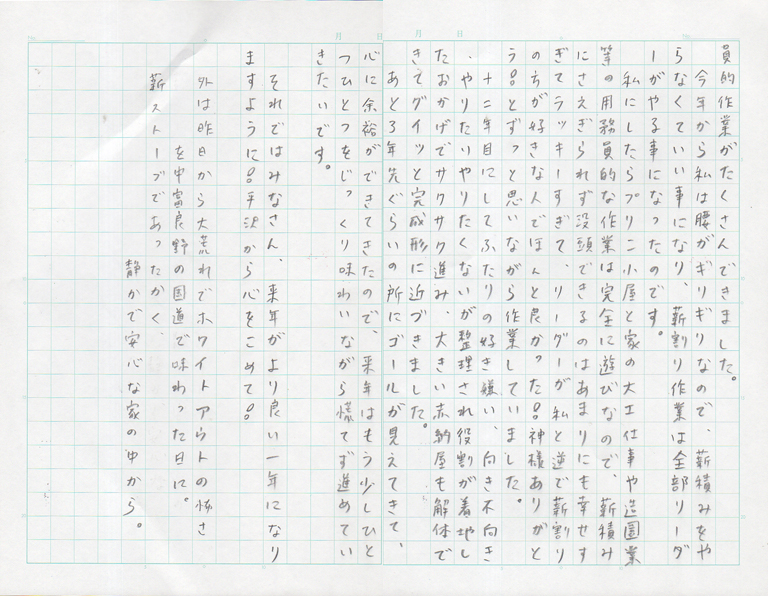 員的作業がたくさんできました。
今年から私は腰がギリギリなので、薪積みをや
らなくていい事になり、薪割り作業は全部リーダ
ーがやる事になったのです。
私にしたらプリこ小屋と家の大工仕事や造園業
等の用務員的な作業は完全に遊びなので、薪積み
にさえぎられず没頭できるのはあまりにも幸せす
ぎてラッキーすぎて、リーダーが私と逆で薪割り
のちが好きな人でほんと良かった!!神様ありがと
う!!とずっと思いながら作業していました。
十二年目にしてふたりの好き嫌い、向き不向き
、やりたいやりたくないが整理され役割が着地し
たおかげでサクサク進み、大きい赤納屋も解体で
きてグイッと完成形に近づきました。
あと3年先ぐらいの所にゴールが見えてきて、
心に余裕ができてきたので、来年はもう少しひと
つひとつをじっくり味わいながら慌てず進めてい
きたいです。
それではみなさん、来年がより良い一年になり
ますように!!平沢から心をこめて!!
外は昨日から大荒れでホワイトアウトの怖さ
を中富良野の国道で味わった日に。
薪ストーブであったかく、
静かで安心な家の中から。
月 日
月 日